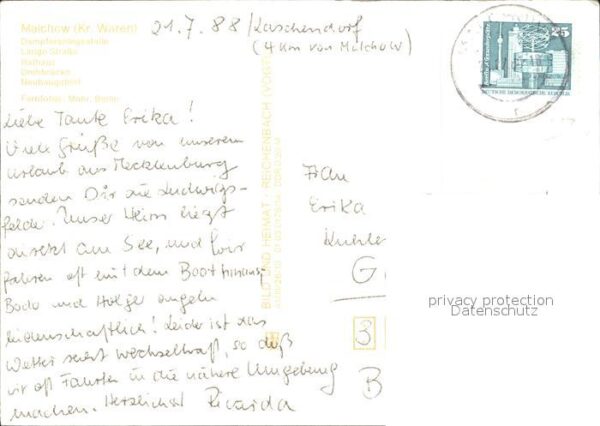 Malchow (Kr. Waren)
Dampferanlegestelle
Lange Straße
Rathaus
Drehbrücke
Neubaugebiet
Farbfotos: Mohr, Berlin
21.7.88/Kaschendorf
(4 km von Malchow)
25
DEUTSCHE DEMOKRATISCHE REPUBLIK
Liebe Tante Erika!
Viele Grüße von unserem
Urlaub aus Mecklenburg
senden Dir die Ludwigs-
felder. Unser Heim liegt
direkt am See, und wir
fahren oft mit dem Boot hinaus.
Bodo und Holger angeln
leidenschaftlich! Leider ist das
Wetter sehr wechselhaft, so daß
wir oft Fahrten in die nähere Umgebung
machen. Herzlichst Ricarda
BILD UND HEIMAT REICHENBACH (VOGTL)
Frau
Erika
G
3
B
privacy protection
Datenschutz